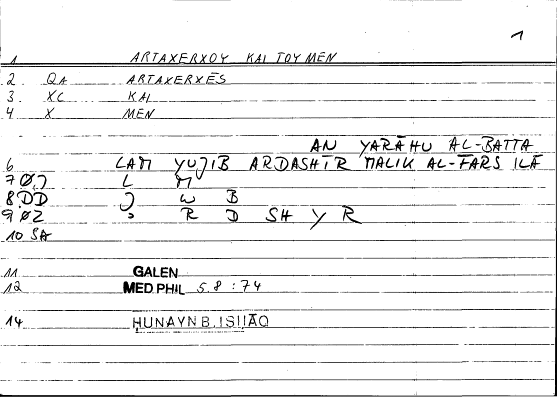 1
1 ARTAXERXOY KAI TOY MEN
2. QA ARTAXERXĒS
3. XC KAI
4 X MEN
AN YARĀHU AL-BATTA
6 LAM YUJIB ARDASHĪR MALIK AL-FARS ILĀ
7 ØJ L M
8. DD J W B
9 ØZ ʾ R D SH Y R
10 SA
11 GALEN
12 MED PHIL 5.8:74
14 ḤUNAYN B. ISḤĀQ